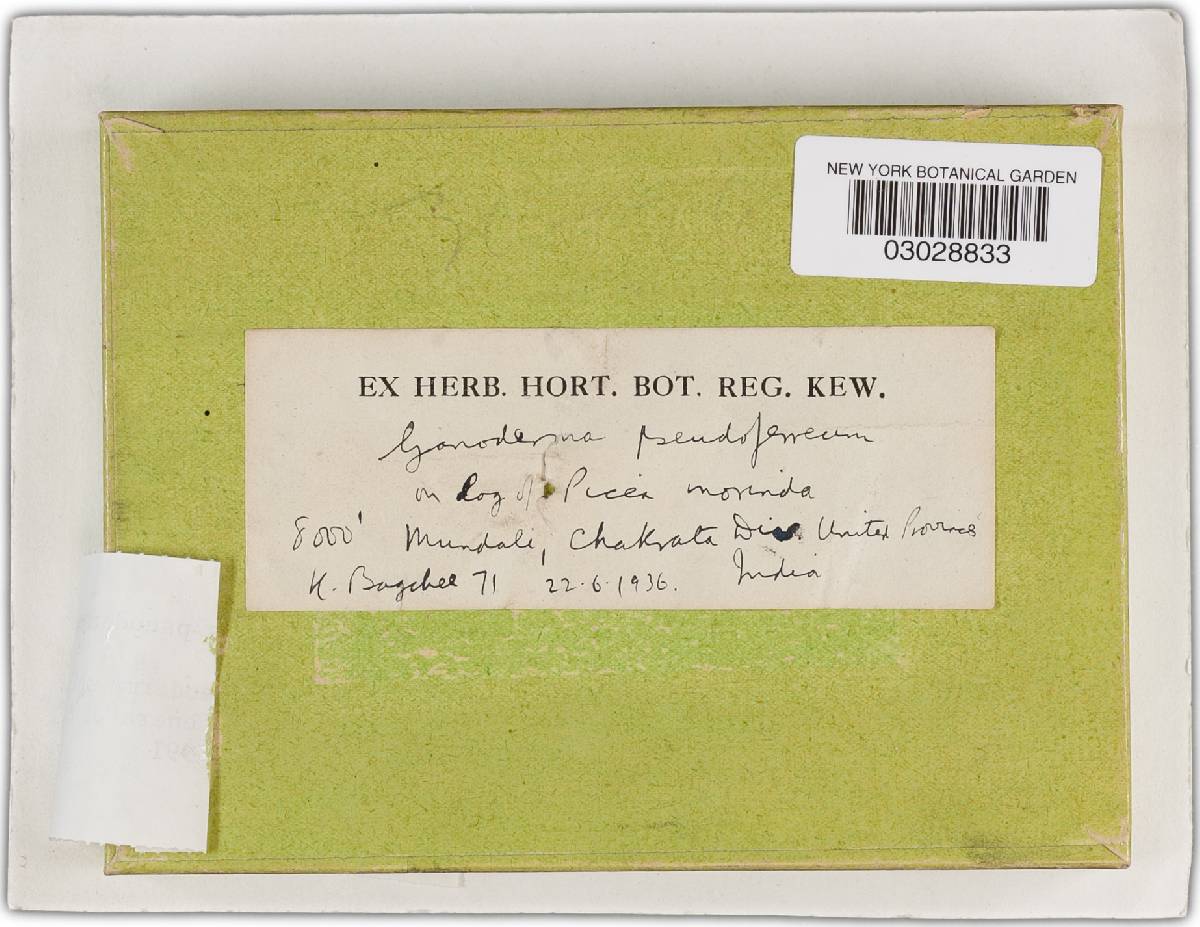 NEW YORK BOTANICAL GARDEN
03028833
EX HERB. HORT. BOT. REG. KEW.
Ganoderma pseudoferreum
on log of Picea morinda
8000' Mundali, Chakrata Div. United Provinces
K. Bagchee 71 22.6.1936. India